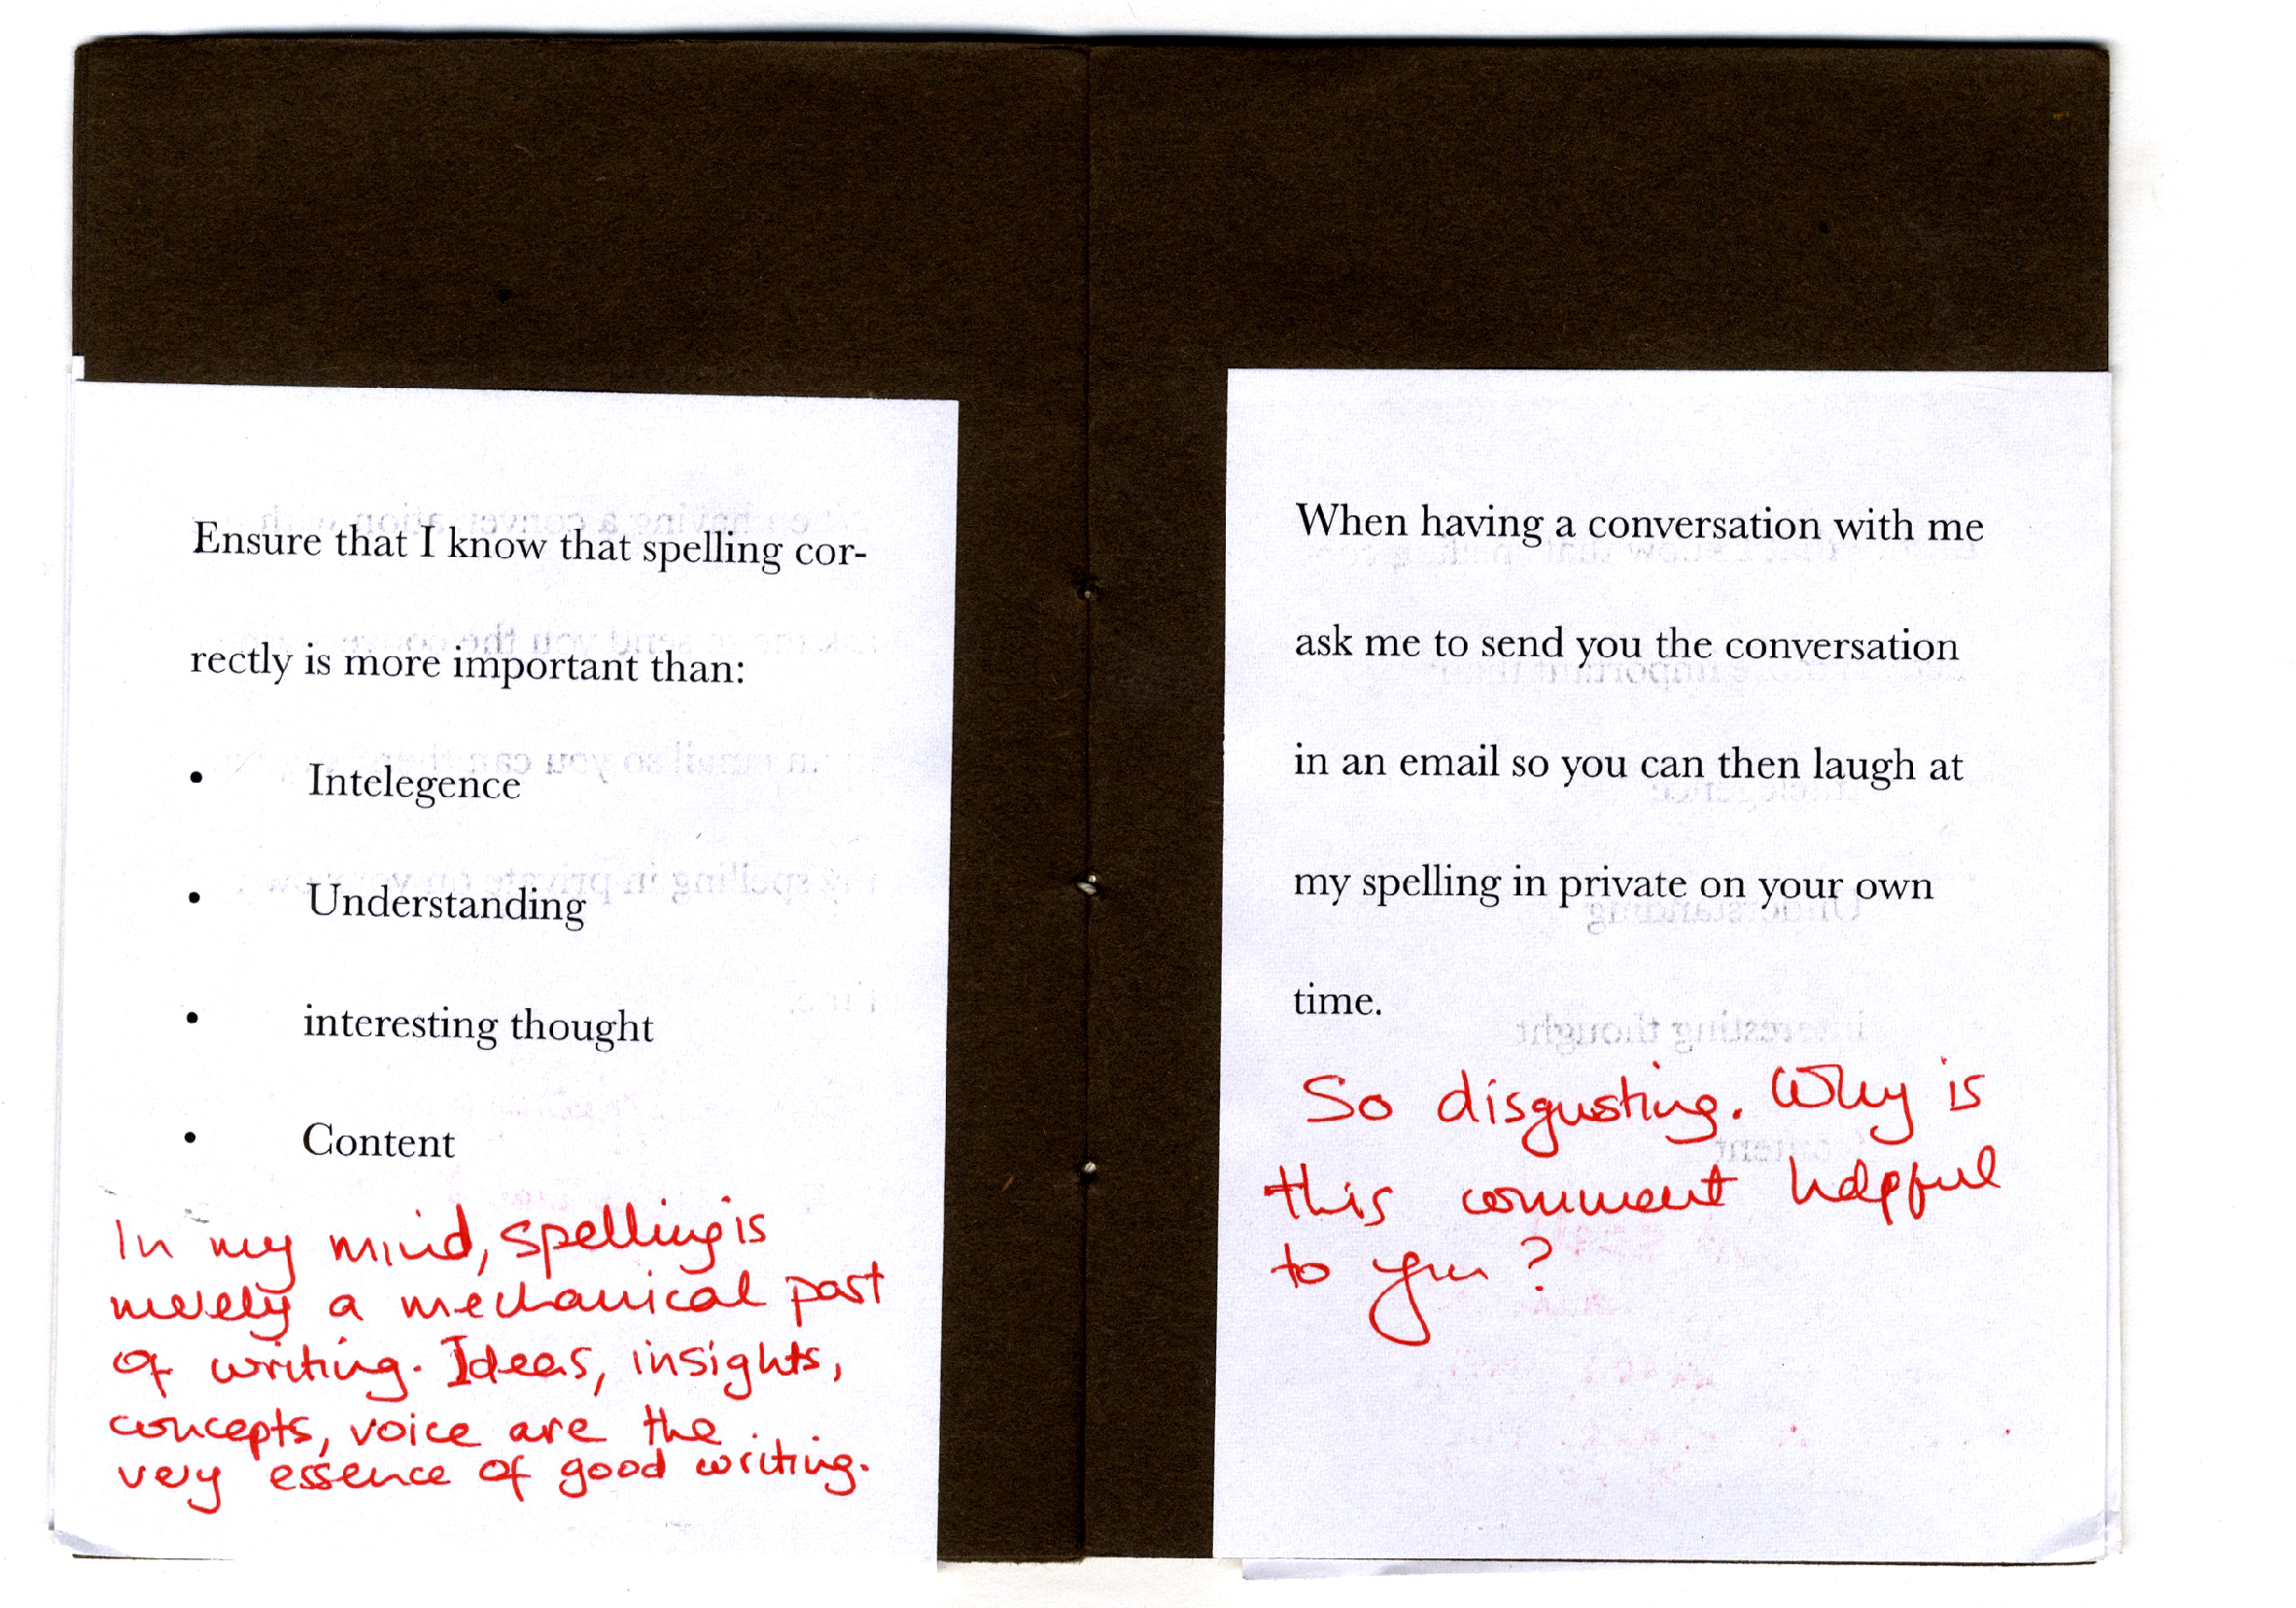 Ensure that I know that spelling cor-
rectly is more important than:
• Intelegence
• Understanding
• interesting thought
• Content
In my mind, spelling is
merely a mechanical part
of writing. Ideas, insights,
concepts, voice are the
very essence of good writing.
When having a conversation with me
ask me to send you the conversation
in an email so you can then laugh at
my spelling in private on your own
time.
So disgusting. Why is
this comment helpful
to you?